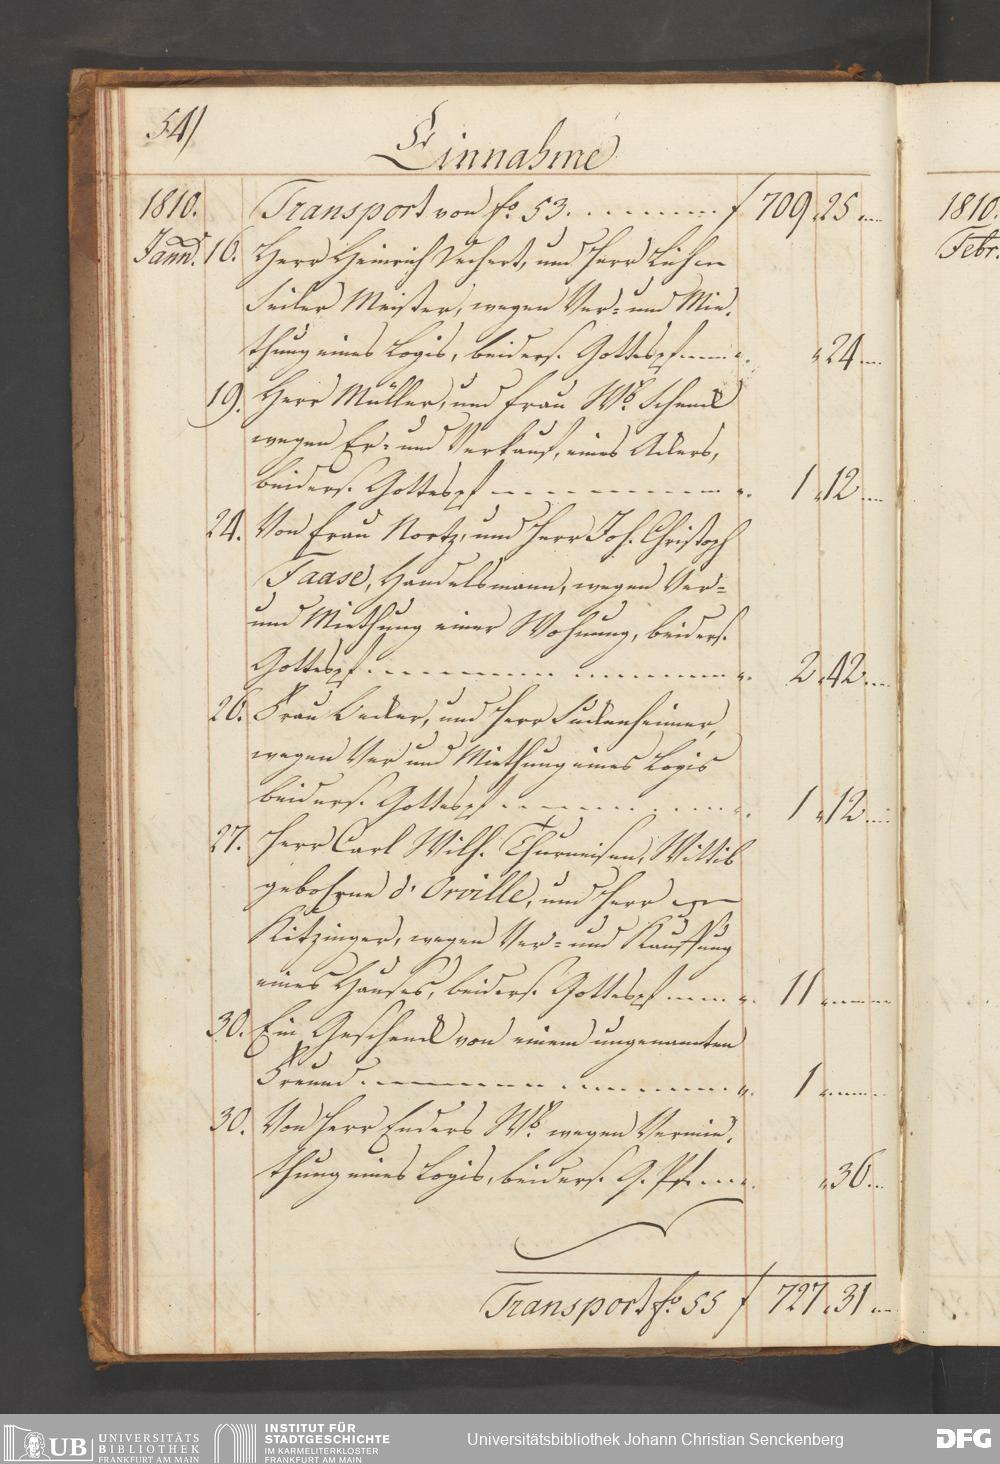 54)
Einnahme
1810. Transport von fo. 53. f 709 „ 25 „
Jann. 16. Herr Heinrich Dechert, und Herr
Seiler Meister, wegen Ver= und Mie¬
thung eines Logis, beiders. Gottespf. „ „ 24
19. Herr Müller, und Frau Wb. Schenck
wegen Er= und Verkauf, eines Ackers,
beiders. Gottespf „ 1 „ 12
24. Von Frau Nortz, und Herr Joh. Christoph
Taase, Handelsmann, wegen Ver=
und Miethung einer Wohnung, beiders.
Gottespf. „ 2 „ 42
26. Frau Becker, und Herr Fuckenheimer,
wegen Ver und Miethung eines Logis
beiders. Gottespf „ 1 „ 12
27. Herr Carl Wilh. Thurneisen, Wittib
gebohrne d'Orville, und Herr
Kitzinger, wegen Ver= und Kauffung
eines Hauses, beiders. Gottespf „ 11 „
30. Ein Geschenck von einem ungenannten
Freund „ 1 „
30. Von Herr Enders Wb. wegen Vermie¬
thung eines Logis, beiders. G. Pf. „ „ 36
Transport fo. 55 f 727 „ 31 „
1810.
Febr.
UB UNIVERSITÄTS
BIBLIOTHEK
FRANKFURT AM MAIN
INSTITUT FÜR
STADTGESCHICHTE
IM KARMELITERKLOSTER
FRANKFURT AM MAIN
Universitätsbibliothek Johann Christian Senckenberg
DFG